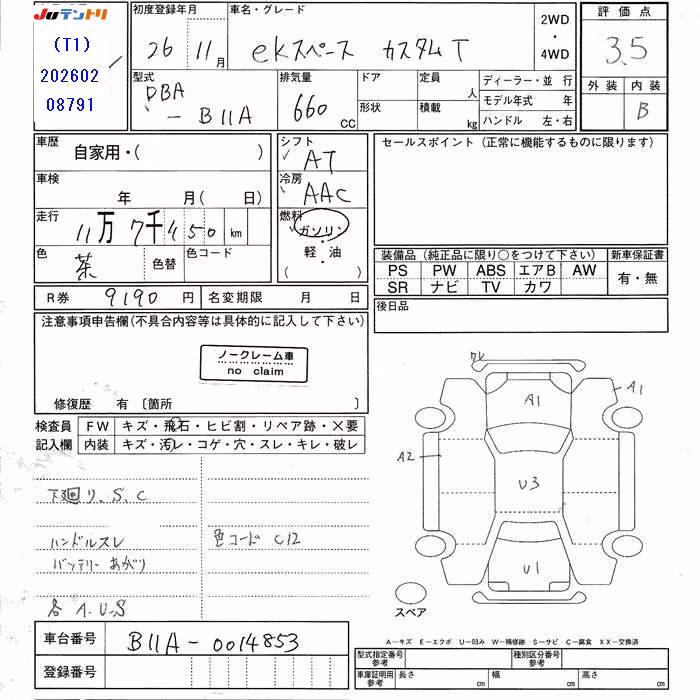 JUテントリ
(T1)
202602
08791
初度登録年月
26 11月
車名・グレード
ekスペース カスタムT
2WD
・
4WD
評価点
3.5
外装 内装
B
型式
DBA
- B11A
排気量
660 CC
ドア
形状
定員 人
積載 kg
ディーラー・並 行
モデル年式 年
ハンドル 左・右
車歴
自家用・( )
シフト
AT
セールスポイント (正常に機能するものに限ります)
車検
年 月( 日)
冷房
AAC
走行
11万7千450 km
燃料
ガソリン
軽・油
( )
色
茶
色替
色コード
装備品 (純正品に限り○をつけて下さい)
新車保証書
PS PW ABS エアB AW
SR ナビ TV カワ
有・無
R券 9190 円
名変期限 月 日
後日品
注意事項申告欄(不具合内容等は具体的に記入して下さい)
ノークレーム車
no claim
修復歴 有 〔箇所 〕
検査員
記入欄
FW キズ・飛石・ヒビ割・リペア跡・×要
内装 キズ・汚レ・コゲ・穴・スレ・キレ・破レ
下廻り、S、C
ハンドルスレ
色コード C12
バッテリーあがり
各A.U.S
ワレ
A1
A1
A2
U3
U1
スペア
A-キズ E-エクボ U-凹み W-補修跡 S-サビ C-腐食 XX-交換済
車台番号 B11A-0014853
登録番号
型式指定番号
参考
種別区分番号
参考
車庫証明用
参考
長さ cm
幅 cm
高さ cm